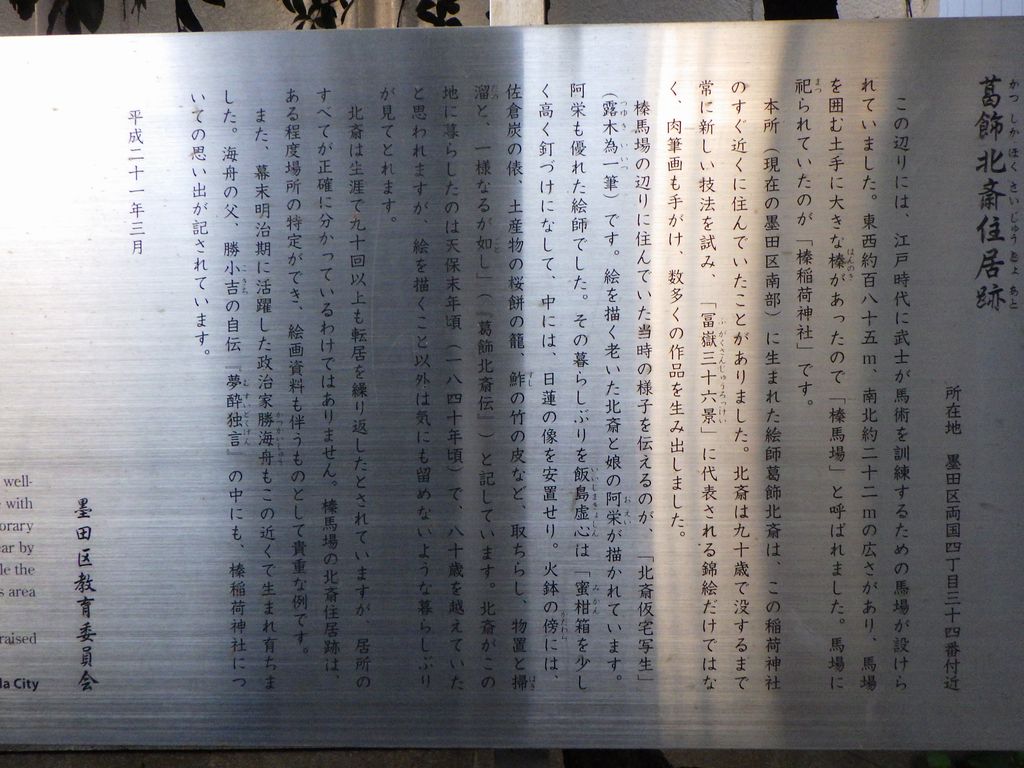 葛飾北斎住居跡
所在地　墨田区両国四丁目三十四番付近
この辺りには、江戸時代に武士が馬術を訓練するための馬場が設けら
れていました。東西約百八十五m、南北約二十二mの広さがあり、馬場
を囲む土手に大きな榛があったので「榛馬場」と呼ばれました。馬場に
祀られていたのが「榛稲荷神社」です。
本所（現在の墨田区南部）に生まれた絵師葛飾北斎は、この稲荷神社
のすぐ近くに住んでいたことがありました。北斎は九十歳で没するまで
常に新しい技法を試み、「冨嶽三十六景」に代表される錦絵だけではな
く、肉筆画も手がけ、数多くの作品を生み出しました。
榛馬場の辺りに住んでいた当時の様子を伝えるのが、「北斎仮宅写生」
（露木為一筆）です。絵を描く老いた北斎と娘の阿栄が描かれています。
阿栄も優れた絵師でした。その暮らしぶりを飯島虚心は「蜜柑箱を少し
く高く釘づけになして、中には、日蓮の像を安置せり。火鉢の傍には、
佐倉炭の俵、土産物の桜餅の籠、鮓の竹の皮など、取ちらし、物置と掃
溜と、一様なるが如し」（『葛飾北斎伝』）と記しています。北斎がこの
地に暮らしたのは天保末年頃（一八四十年頃）で、八十歳を越えていた
と思われますが、絵を描くこと以外は気にも留めないような暮らしぶり
が見てとれます。
北斎は生涯で九十回以上も転居を繰り返したとされていますが、居所の
すべてが正確に分かっているわけではありません。榛馬場の北斎住居跡は、
ある程度場所の特定ができ、絵画資料も伴うものとして貴重な例です。
また、幕末明治期に活躍した政治家勝海舟もこの近くで生まれ育ちま
した。海舟の父、勝小吉の自伝『夢酔独言』の中にも、榛稲荷神社につ
いての思い出が記されています。
平成二十一年三月
墨田区教育委員会
well-
with
orary
ar by
le the
s area
raised
la City